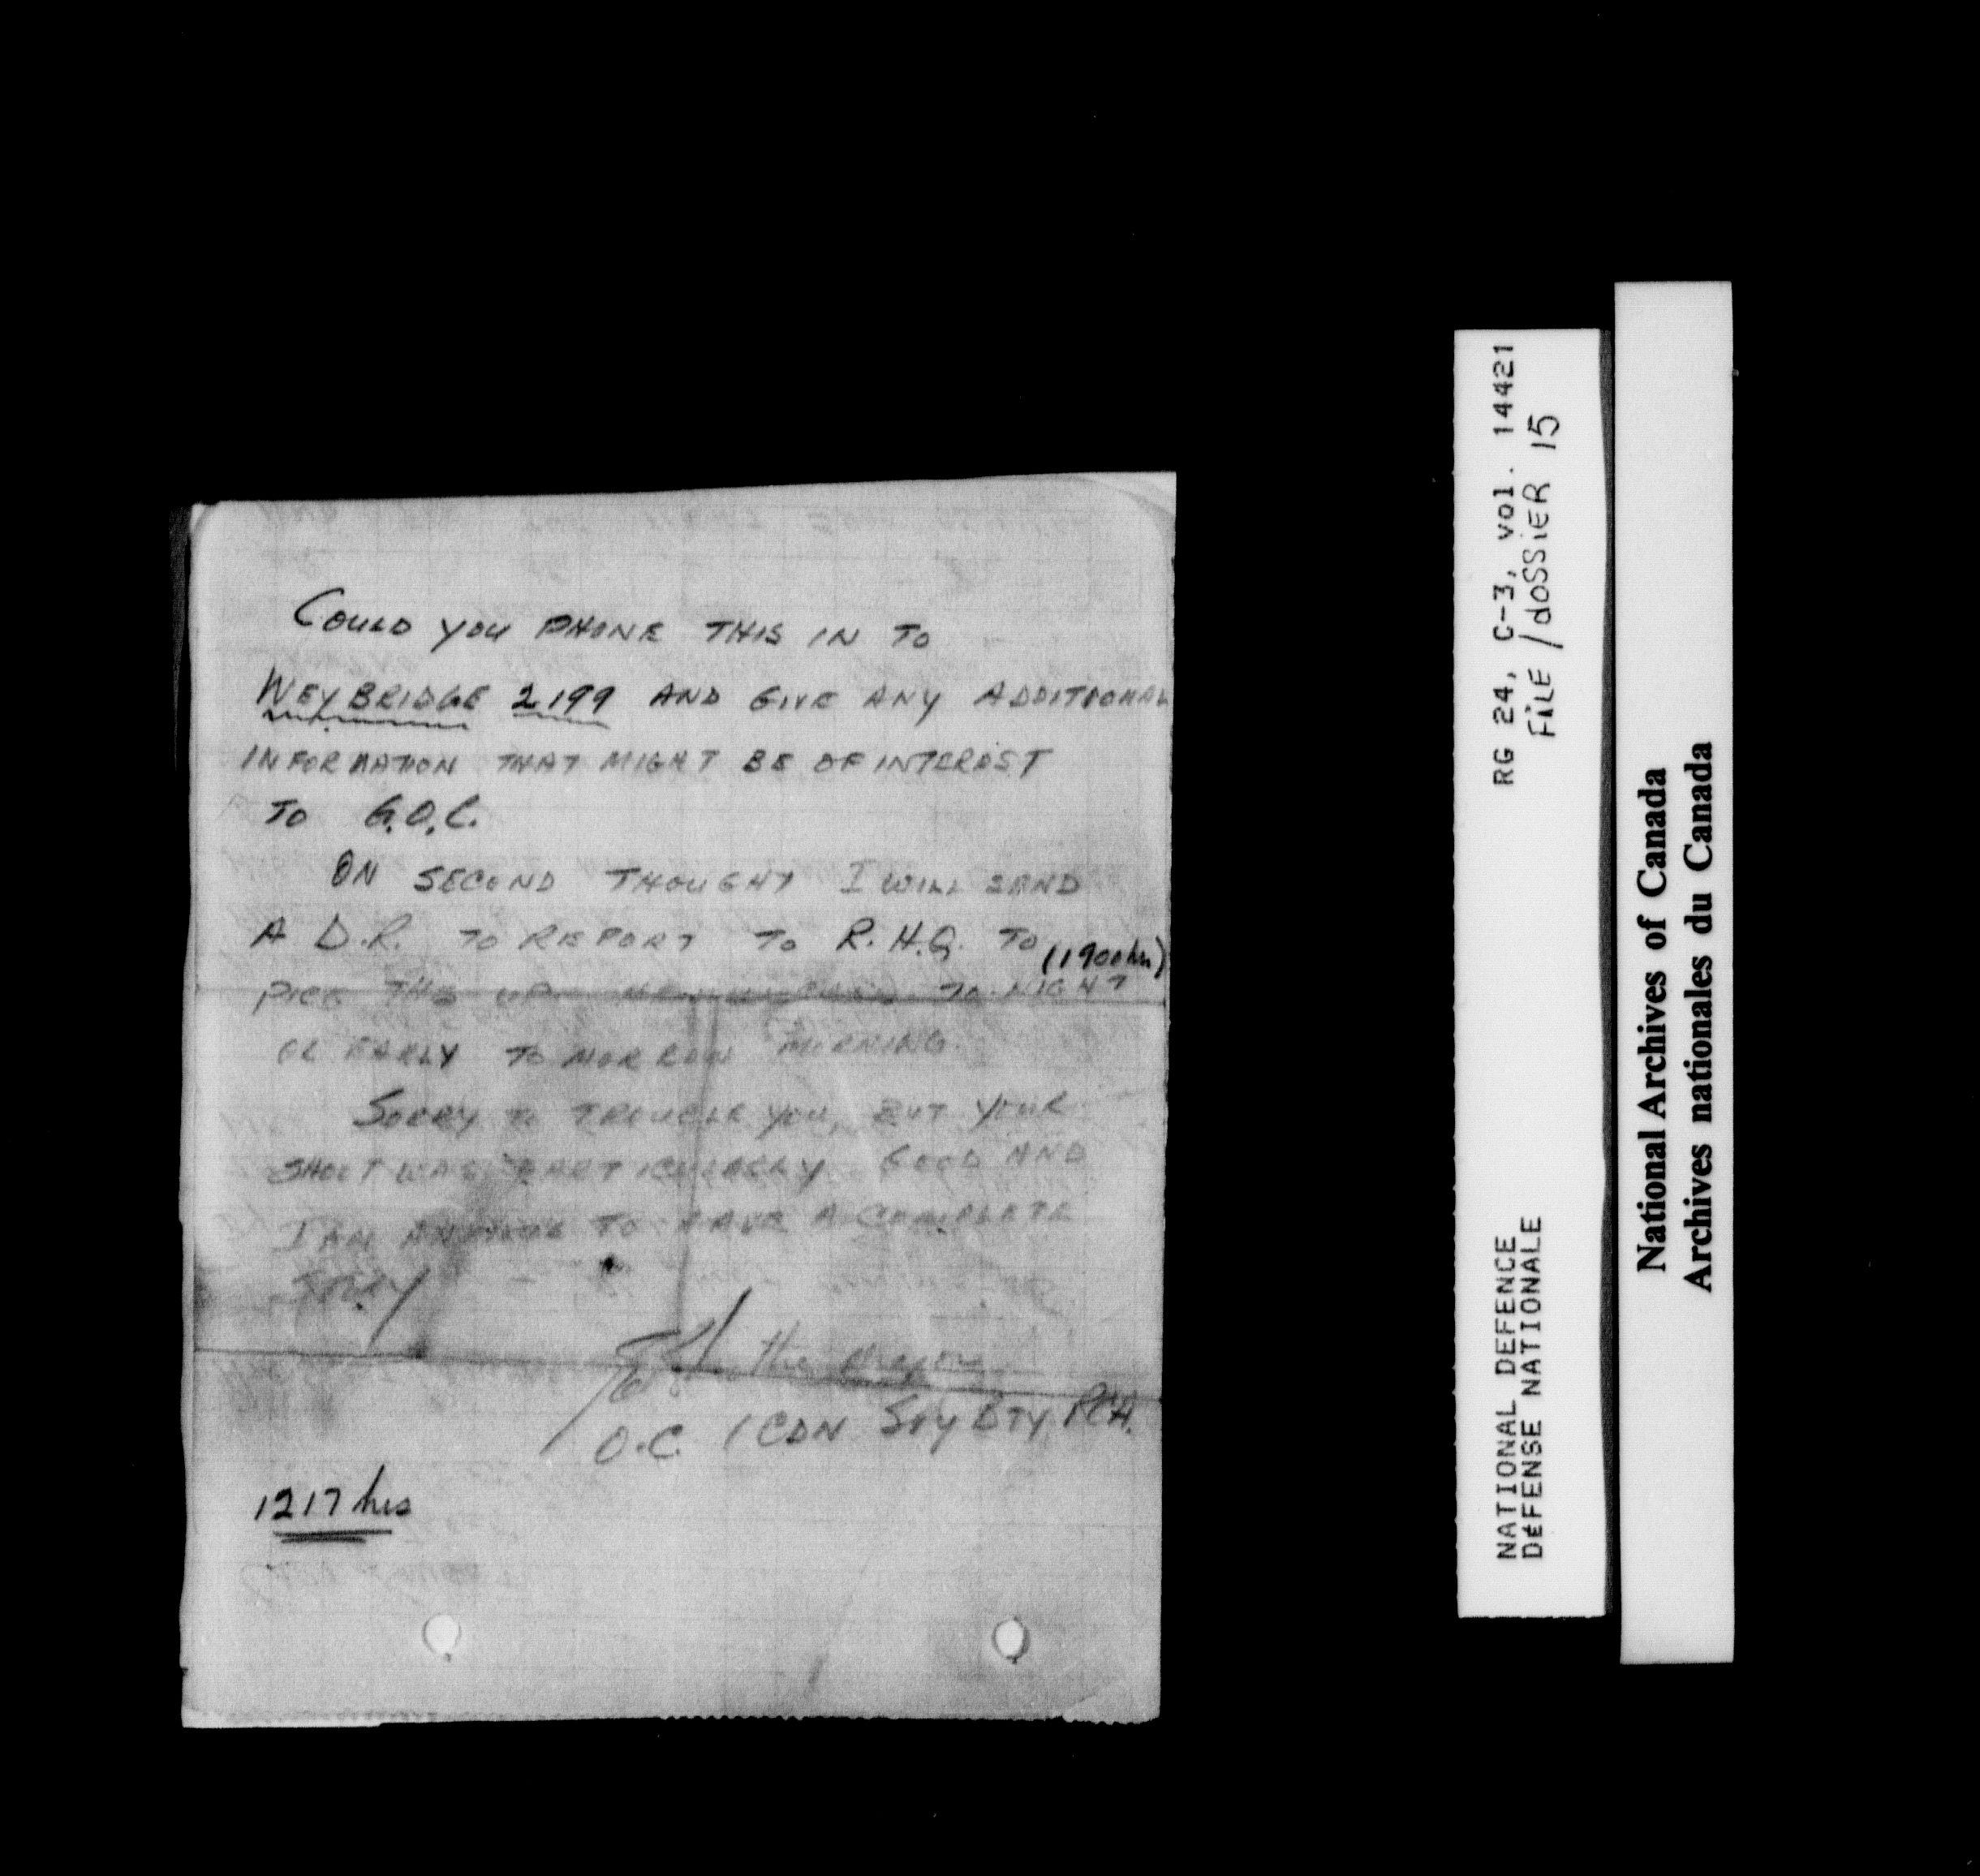 COULD YOU PHONE THIS IN TO
WEYBRIDGE 2199 AND GIVE ANY ADDITIONAL
INFORMATION THAT MIGHT BE OF INTEREST
TO G.O.C.
ON SECOND THOUGHT I WILL SEND
A D.R. TO REPORT TO R.H.Q. TO
(1900 hrs)
PICK THIS UP TO-NIGHT
OR EARLY TO MORROW MORNING.
SORRY TO TROUBLE YOU, BUT YOUR
SHOOT WAS PARTICULARLY GOOD AND
I AM ANXIOUS TO HAVE A COMPLETE
STORY
O.C. 1 CDN SVY BTY RCA.
1217 hrs
RG 24, C-3, vol. 14421
FILE/dOSSiER 15
NATIONAL DEFENCE
DéFENSE NATIONALE
National Archives of Canada
Archives nationales du Canada